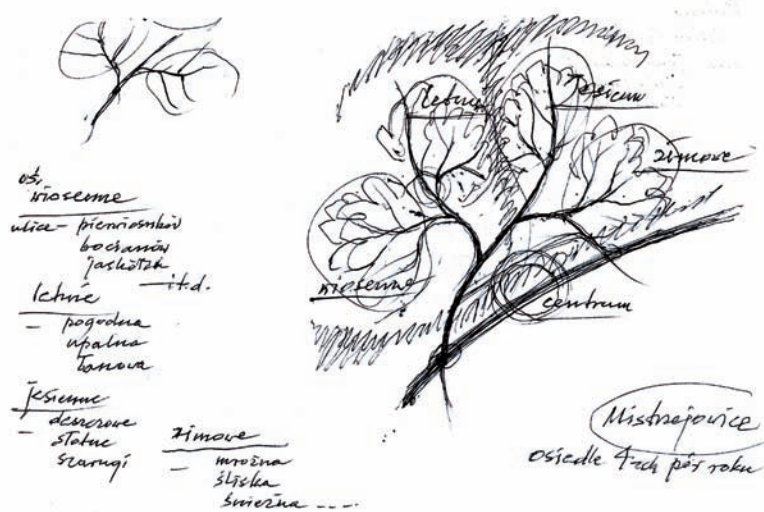 oś.
wiosenne
ulice - pierwiosnków
bocianów
jaskółcza
itd.
letnie
- pogodna
upalna
łanowa
jesienne
- deszczowe
słotne
szarugi
zimowe
- mroźna
śliska
śnieżna ----
letnie
jesienne
zimowe
wiosenne
centrum
Mistrzejowice
osiedle 4-ech pór roku